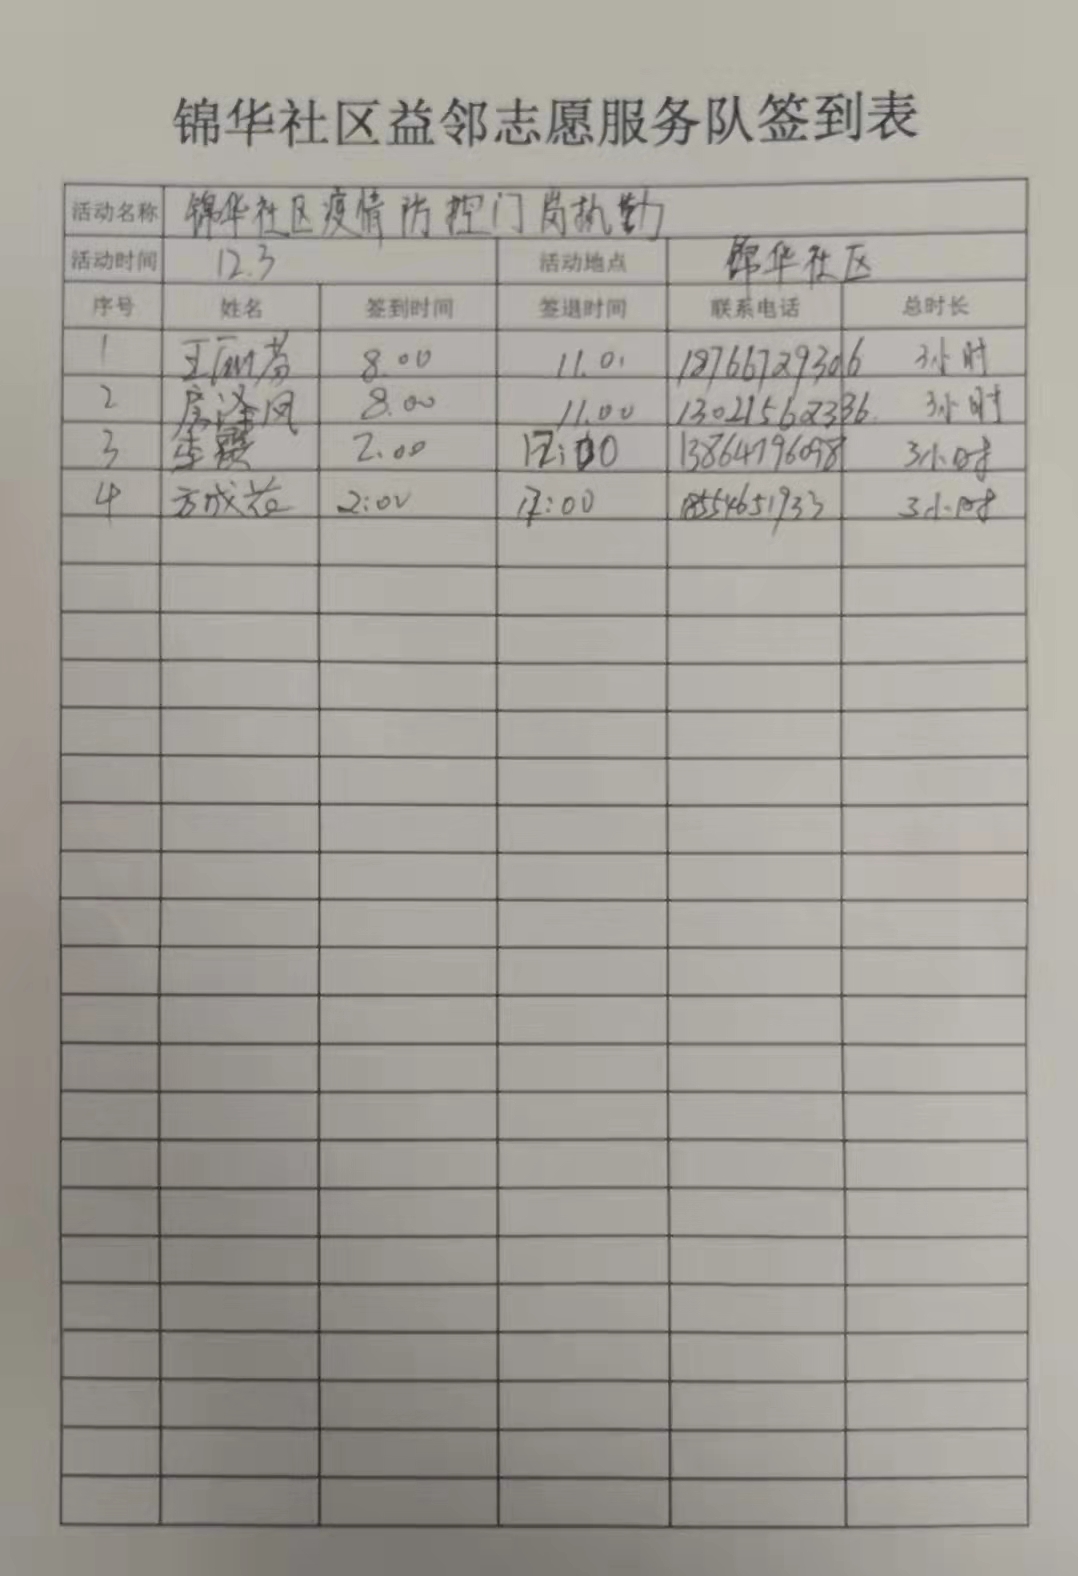 锦华社区益邻志愿服务队签到表
活动名称 锦华社区疫情防控门岗执勤
活动时间 12.3 活动地点 锦华社区
序号 姓名 签到时间 签退时间 联系电话 总时长
1 王丽芳 8.00 11.01 18766729306 3小时
2 房泽凤 8.00 11.00 13021562336. 3小时
3 2.00 13864796098 3小时
4 方成花 2:00 17:00 18554651933 3小时